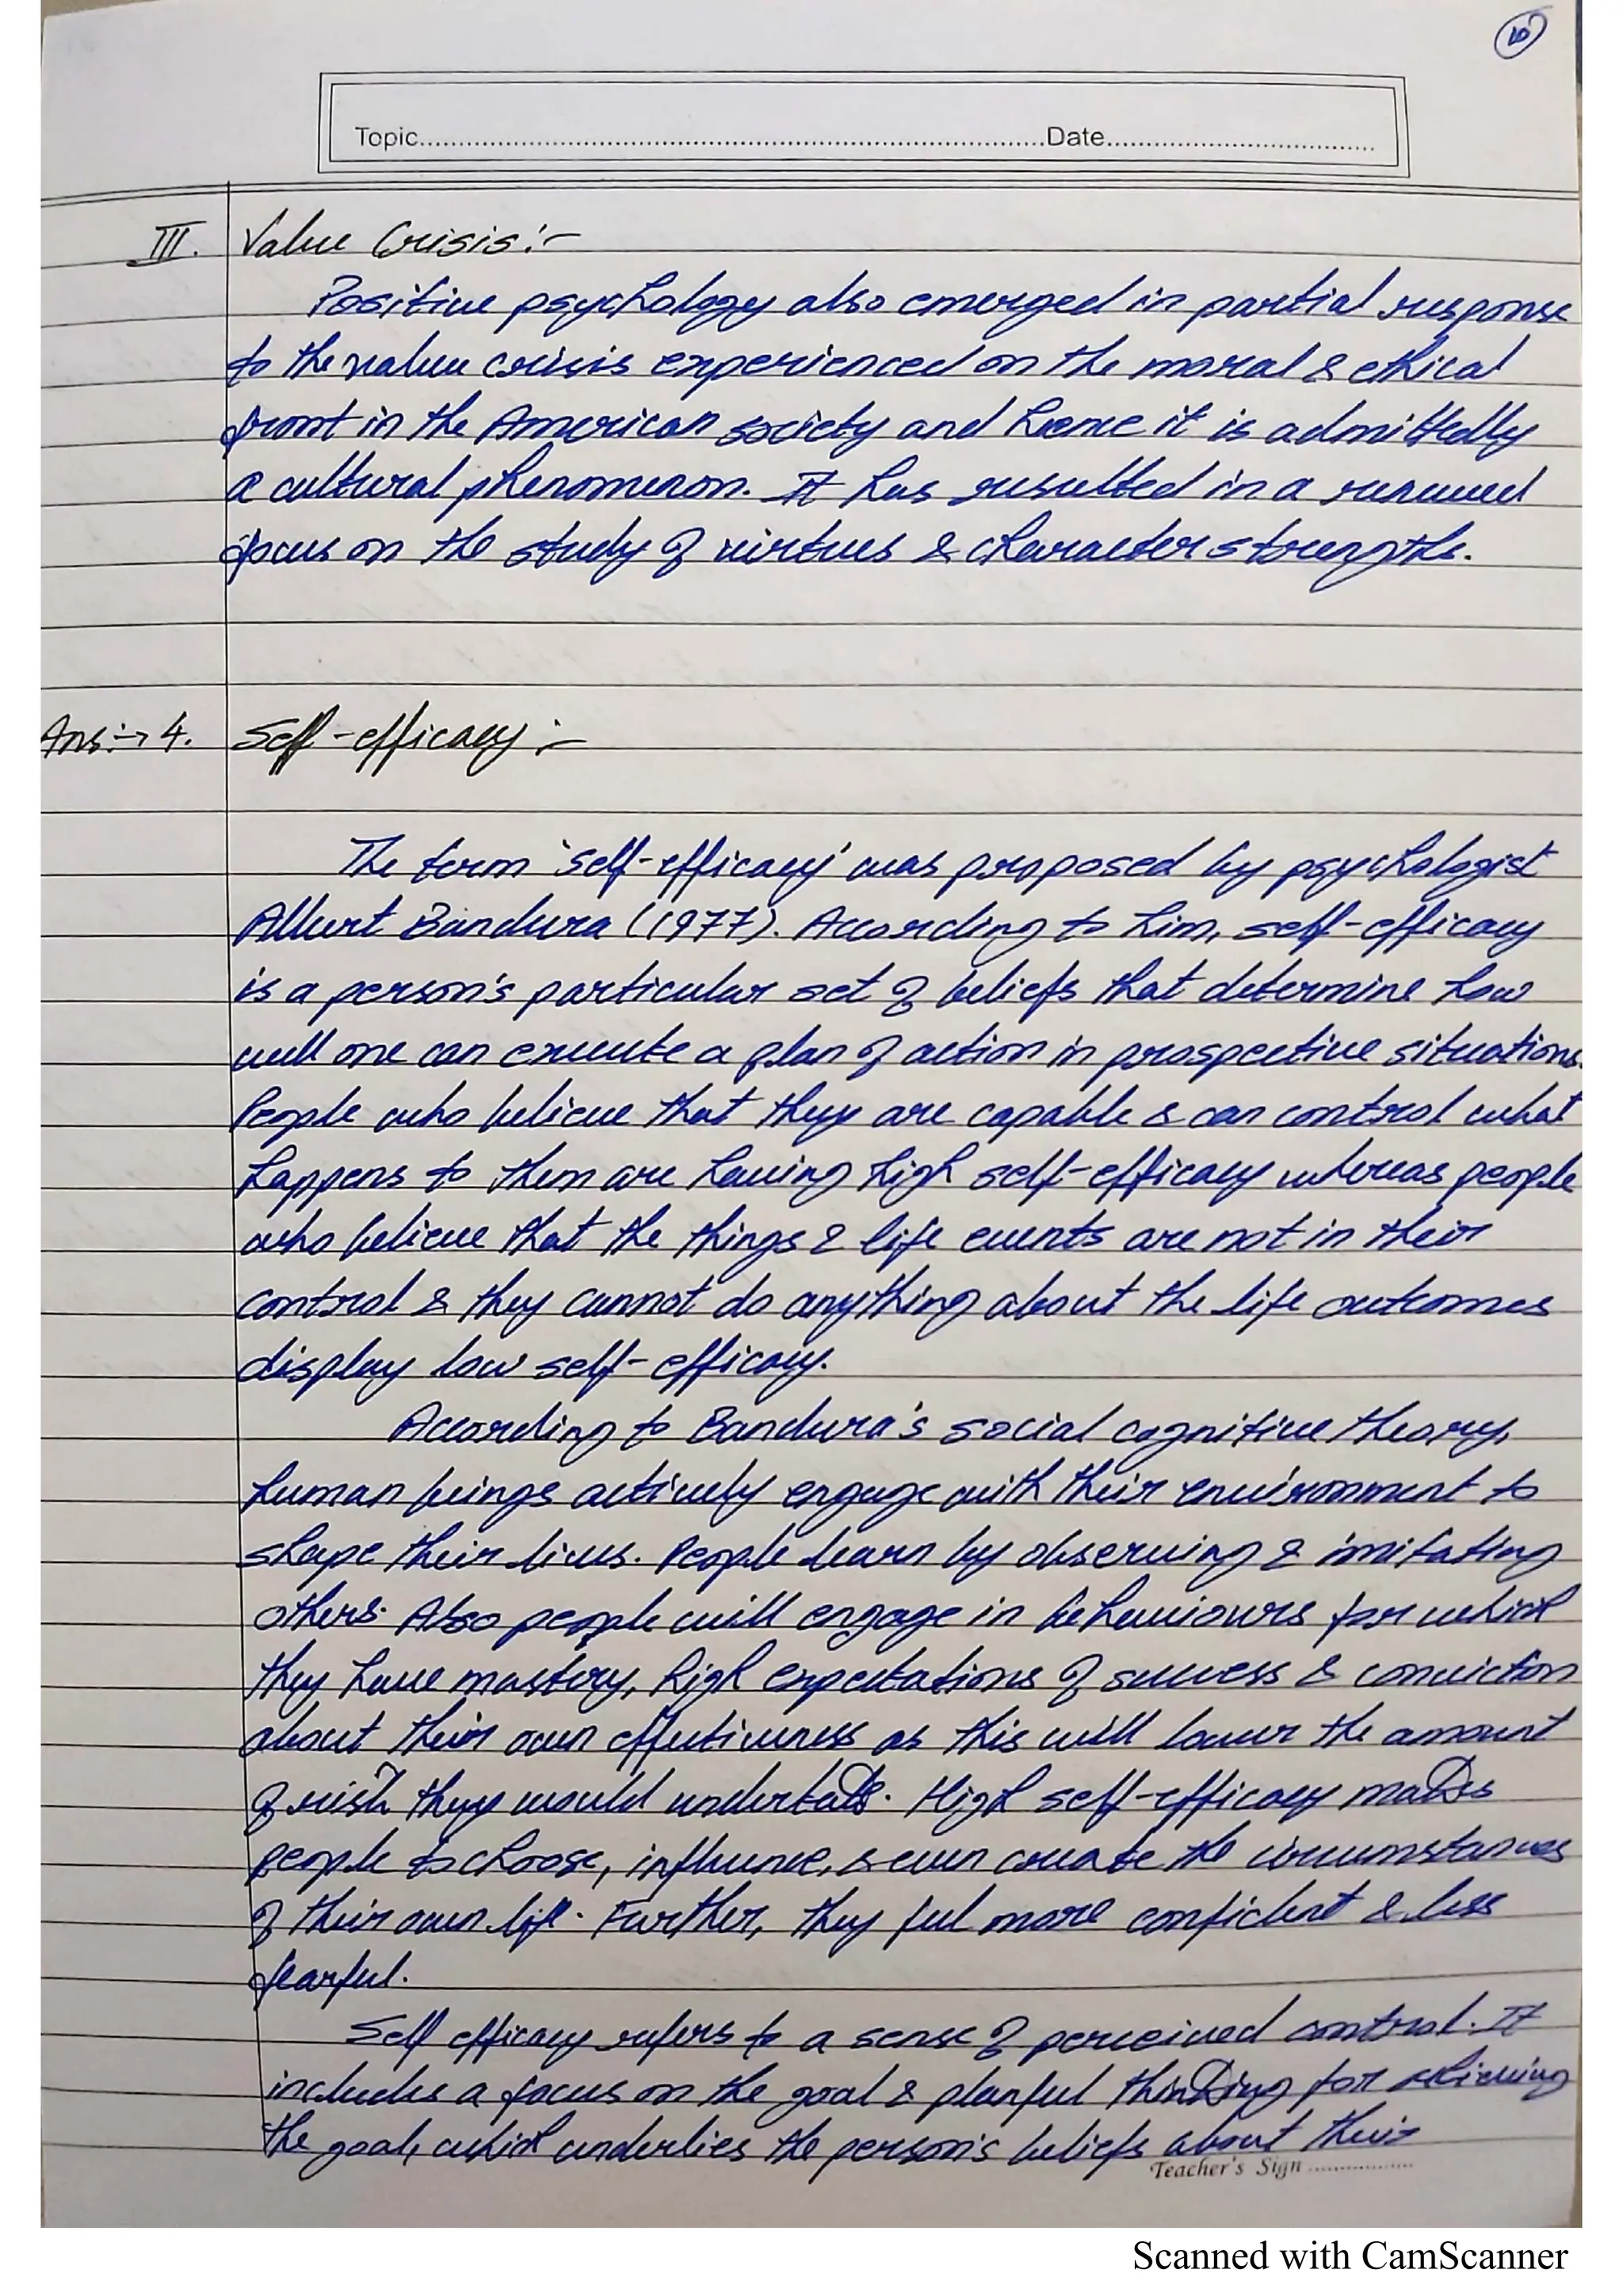 10
Topic Date
III. Value Crisis :-
Positive psychology also emerged in partial response
to the value crisis experienced on the moral & ethical
front in the American society and hence it is admittedly
a cultural phenomenon. It has resulted in a renewed
focus on the study of virtues & character strengths.
Ans:→ 4. Self-efficacy :-
The term 'self-efficacy' was proposed by psychologist
Albert Bandura (1977). According to him, self-efficacy
is a person's particular set of beliefs that determine how
well one can execute a plan of action in prospective situations.
People who believe that they are capable & can control what
happens to them are having high self-efficacy whereas people
who believe that the things & life events are not in their
control & they cannot do anything about the life outcomes
display low self-efficacy.
According to Bandura's social cognitive theory,
human beings actively engage with their environment to
shape their lives. People learn by observing & imitating
others. Also people will engage in behaviours for which
they have mastery, high expectations of success & conviction
about their own effectiveness as this will lower the amount
of risk they would undertake. High self-efficacy makes
people to choose, influence, & even create the circumstances
of their own life. Further, they feel more confident & less
fearful.
Self efficacy refers to a sense of perceived control. It
includes a focus on the goal & planful thinking for achieving
the goal, which underlies the person's beliefs about their
Teacher's Sign
Scanned with CamScanner